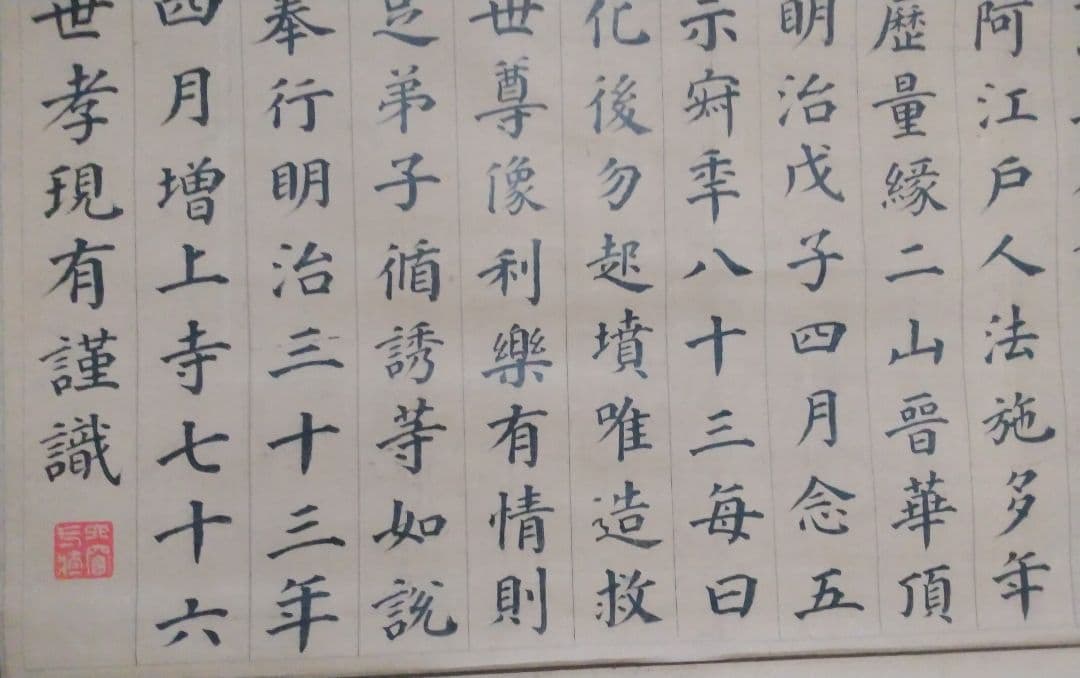 阿江戶人法施多年
歷量緣二山晉華頂
明治戊子四月念五
示寂年八十三每曰
化後勿起墳唯造救
世尊像利樂有情則
足弟子循誘等如說
奉行明治三十三年
四月增上寺七十六
世孝現有謹識